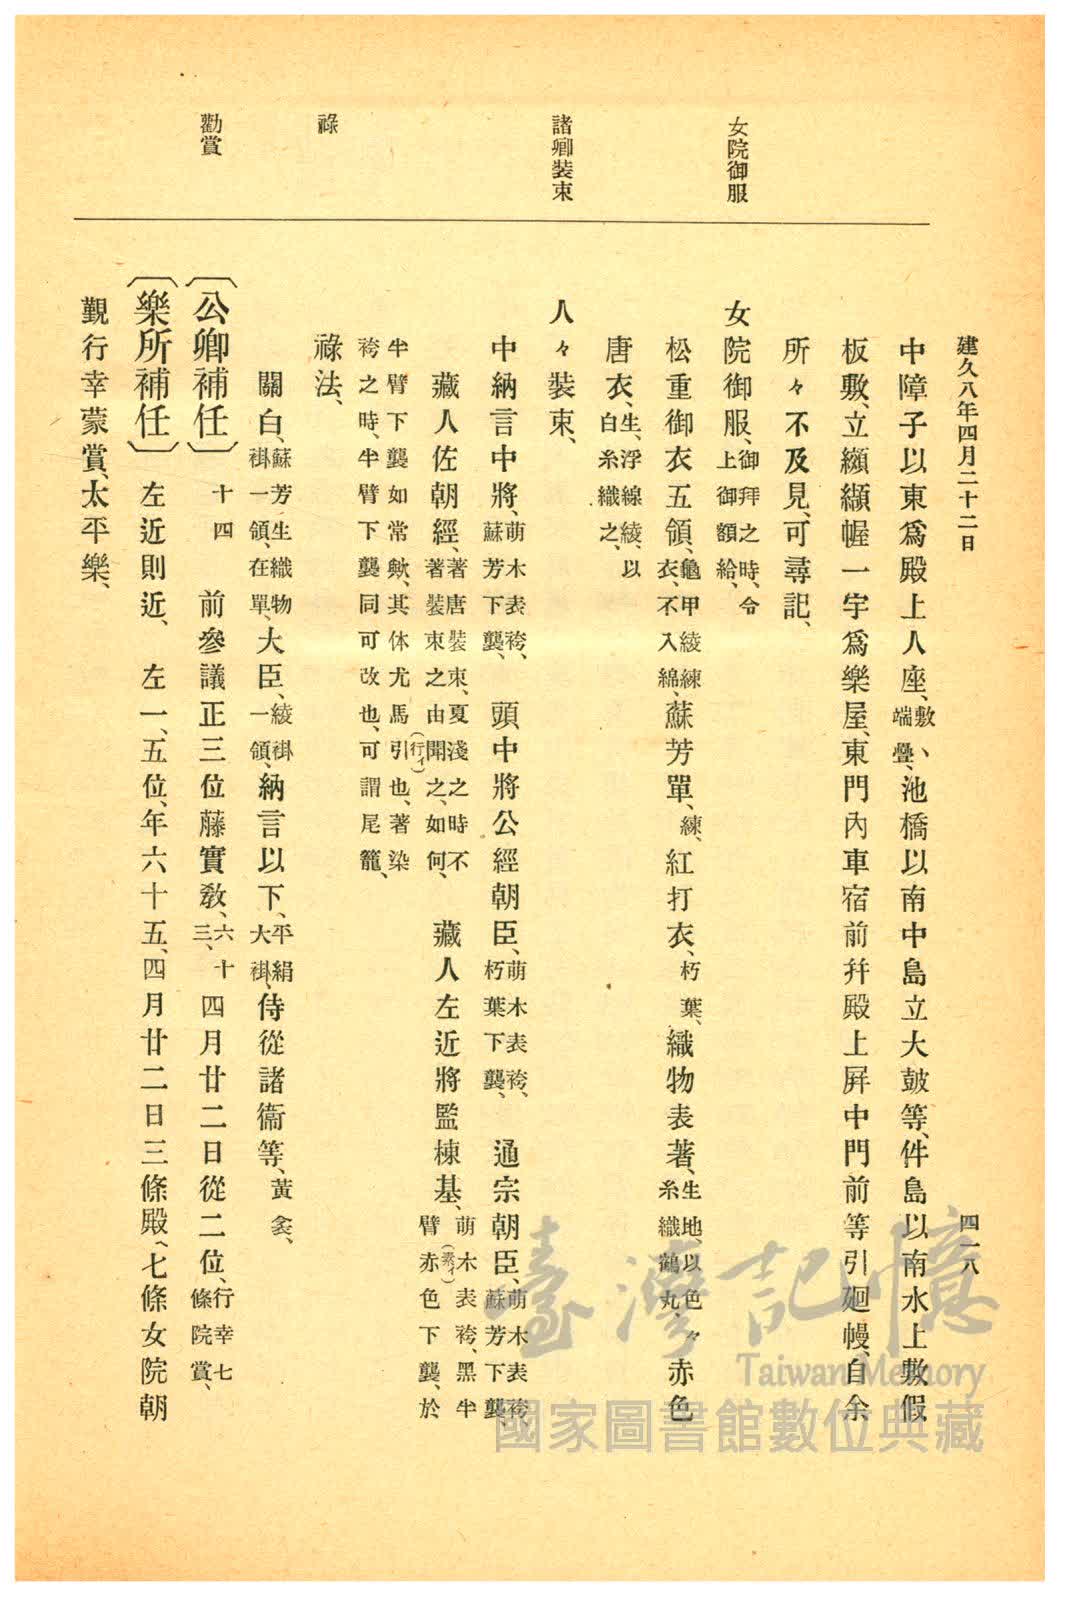 建久八年四月二十二日
四一八
女院御服
諸卿裝束
祿
勸賞
中障子以東爲殿上人座、敷端疊、池橋以南中島立大鼓等、件島以南水上敷假
板敷、立纐纈幄一宇爲樂屋、東門內車宿前幷殿上屛中門前等引廻幔、自余
所々不及見、可尋記、
女院御服、御拜之時、令上御額給、
松重御衣五領、龜甲綾練衣、不入綿、蘇芳單、練、紅打衣、朽葉、織物表著、生地、以色々糸織鶴丸、赤色
唐衣、生、浮線綾、以白糸織之、
人々裝束、
中納言中將、萠木表袴、蘇芳下襲、頭中將公經朝臣、萠木表袴、朽葉下襲、通宗朝臣、萠木表袴、蘇芳下襲、
藏人佐朝經、著唐裝束、夏淺之時不著裝束之由聞之、如何、藏人左近將監棟基、萠木表袴、黑半臂赤色下襲、於
半臂下襲如常歟、其休尤馬引(行イ)也、著染袴之時、半臂下襲同可改也、可謂尾籠、
祿法、
關白、蘇芳生織物褂一領、在單、大臣、綾褂一領、納言以下、平絹大褂、侍從諸衞等、黃衾、
〔公卿補任〕十四 前參議正三位藤實敎、六十三、四月廿二日從二位、行幸七條院賞、
〔樂所補任〕左近則近、左一、五位、年六十五、四月廿二日三條殿、七條女院朝
覲行幸蒙賞、太平樂、
臺灣記憶
Taiwan Memory
國家圖書館數位典藏